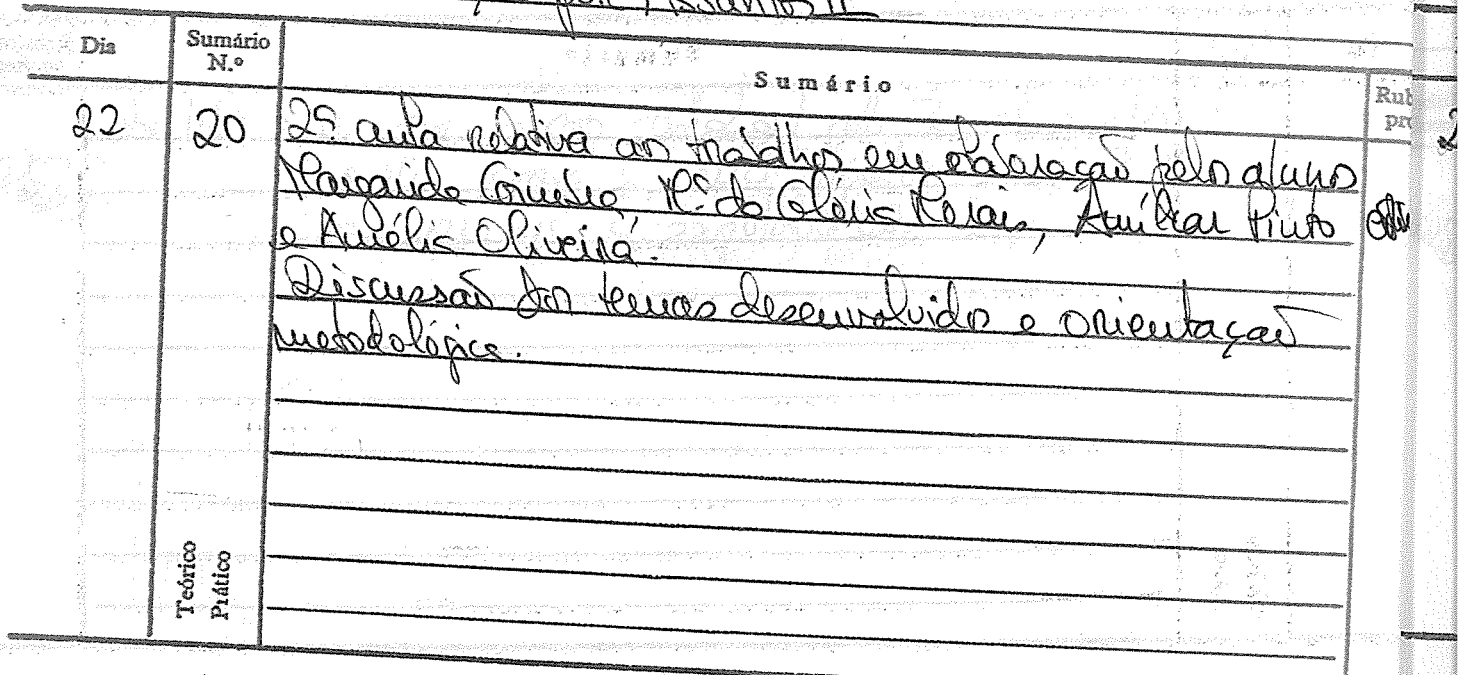 Dia
Sumário
N.º
Sumário
Rub
pro
22
20
2ª aula relativa aos trabalhos em elaboração pelos alunos
Margarida Mª da Glória Amílcar Pinto
e Aurélio Oliveira.
Discussão dos temas desenvolvidos e orientação
metodológica.
Teórico
Prático